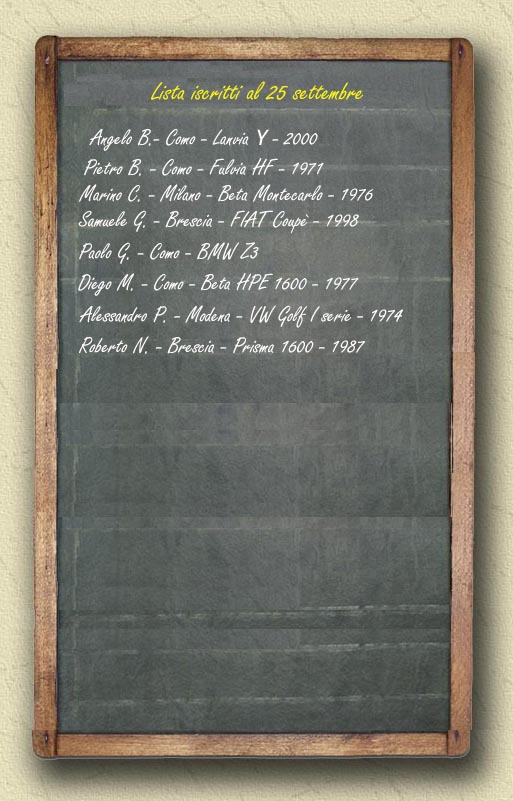 Lista iscritti al 25 settembre
Angelo B.- Como - Lanvia Y - 2000
Pietro B. - Como - Fulvia HF - 1971
Marino C. - Milano - Beta Montecarlo - 1976
Samuele G. - Brescia - FIAT Coupè - 1998
Paolo G. - Como - BMW Z3
Diego M. - Como - Beta HPE 1600 - 1977
Alessandro P. - Modena - VW Golf I serie - 1974
Roberto N. - Brescia - Prisma 1600 - 1987